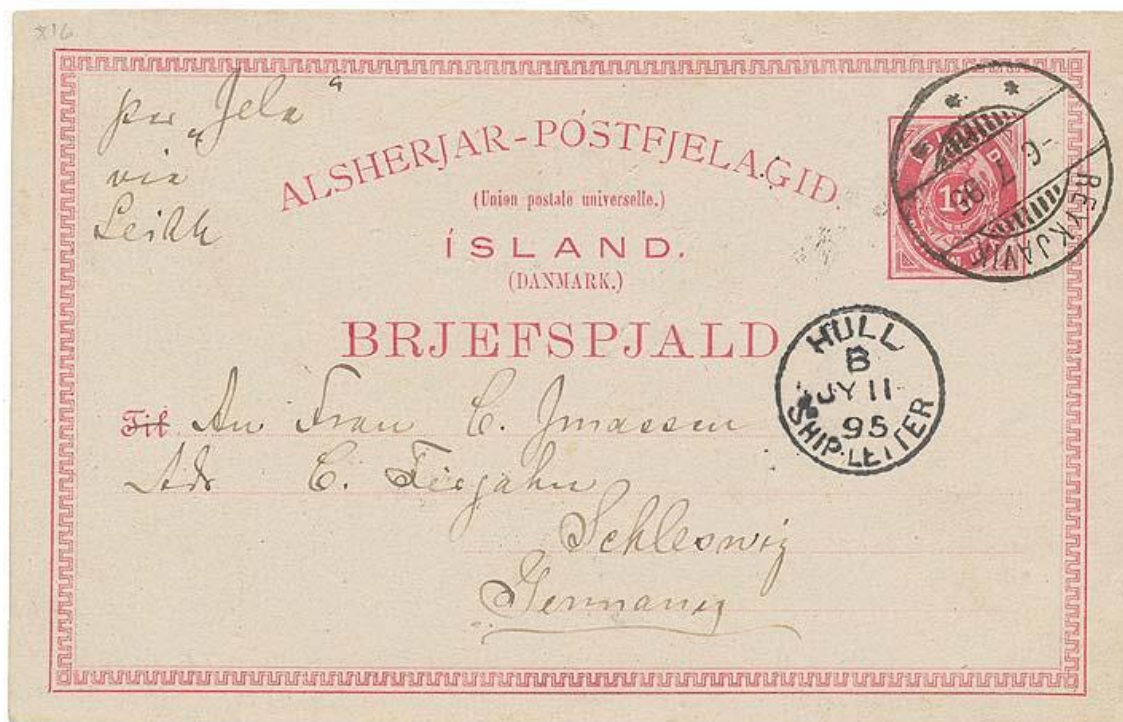 816
per „Jela“
via
Leith
ALSHERJAR-PÓSTFJELAGIÐ.
(Union postale universelle.)
ÍSLAND.
(DANMARK.)
BRJEFSPJALD
REYKJAVIK
9. 7. 95
HULL
B
JY 11
95
SHIP-LETTER
Til An Frau C.
Adr C.
Schleswig
Germany